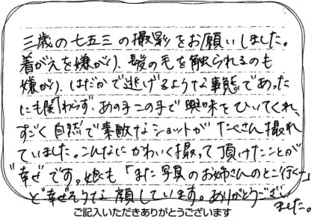 三歳の七五三の撮影をお願いしました。
着がえを嫌がり、髪の毛を触られるのも
嫌がり、はだかで逃げるような事態であった
にも関わらず、あの手この手で興味をひいてくれ、
すごく自然で素敵なショットがたくさん撮れ
ていました。こんなにかわいく撮って頂けたことが
幸せです。娘も「また写真のお姉さんのとこ行くー」
と幸せそうな顔しています。ありがとうござい
ました。
ご記入いただきありがとうございます